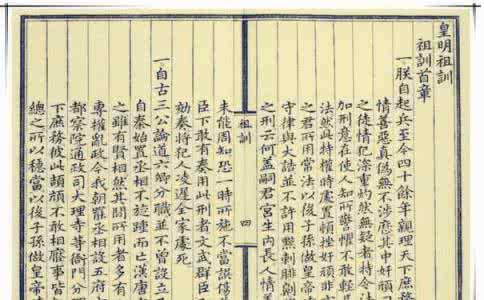 皇明祖訓
祖訓首章
一朕自起兵至今四十餘年親理天下庶務
情善惡真偽無不涉歷其中奸頑
之徒情犯深重灼然無疑者特令
加刑意在使人知所警懼不敢輕
法然此特權時處置頓挫奸頑
之君所用常法以後子孫做皇帝
守律與大誥並不許用黥刺剕
之刑云何蓋嗣君宮生內長人情
四
未能周知恐一時所施不當誤
臣下敢有奏用此刑者文武群臣
劾奏將犯人凌遲全家處死
一自古三公論道六卿分職並不曾設立
自秦始置丞相不旋踵而亡漢唐
之雖有賢相然其間所用者多有
專權亂政今我朝罷丞相設五府
都察院通政司大理寺等衙門分
下庶務彼此頡頏不敢相壓事皆
總之所以穩當以後子孫做皇帝